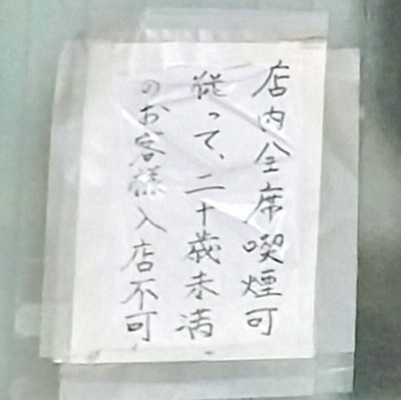 店内全席喫煙可
従って、二十歳未満
のお客様入店不可